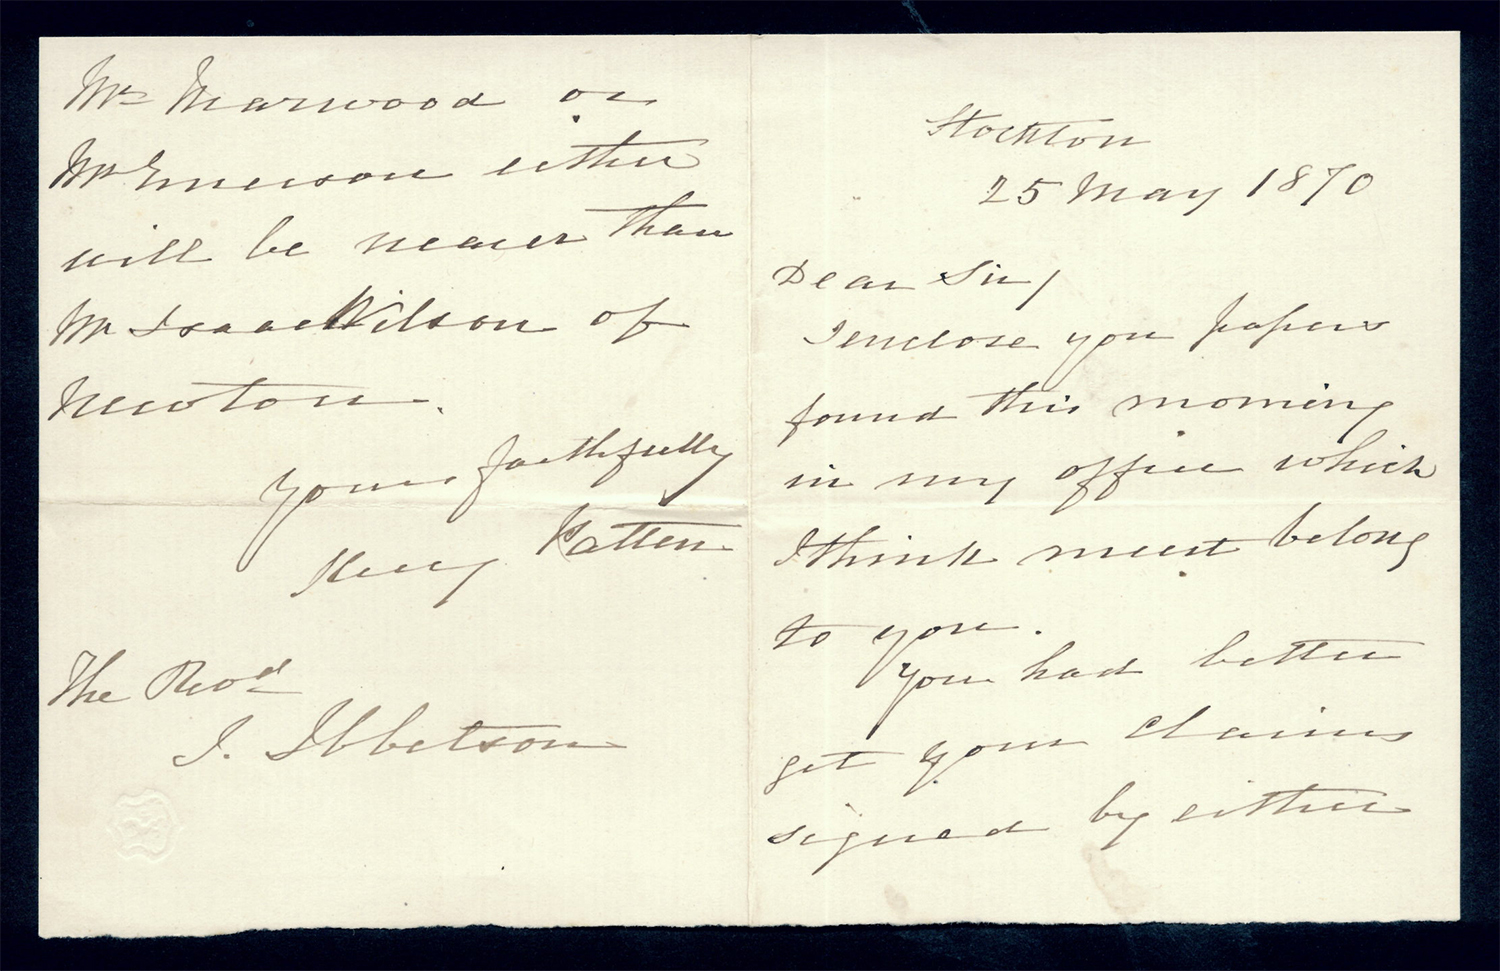 Stockton
25 May 1870
Dear Sir/
I enclose you papers
found this morning
in my office which
I think must belong
to you.
You had better
get your claims
signed by either
Mr Marwood or
Mr Emerson either
will be nearer than
Mr Isaac Wilson of
Newton.
Yours faithfully
Henry
The Revd
J. Ibbetson